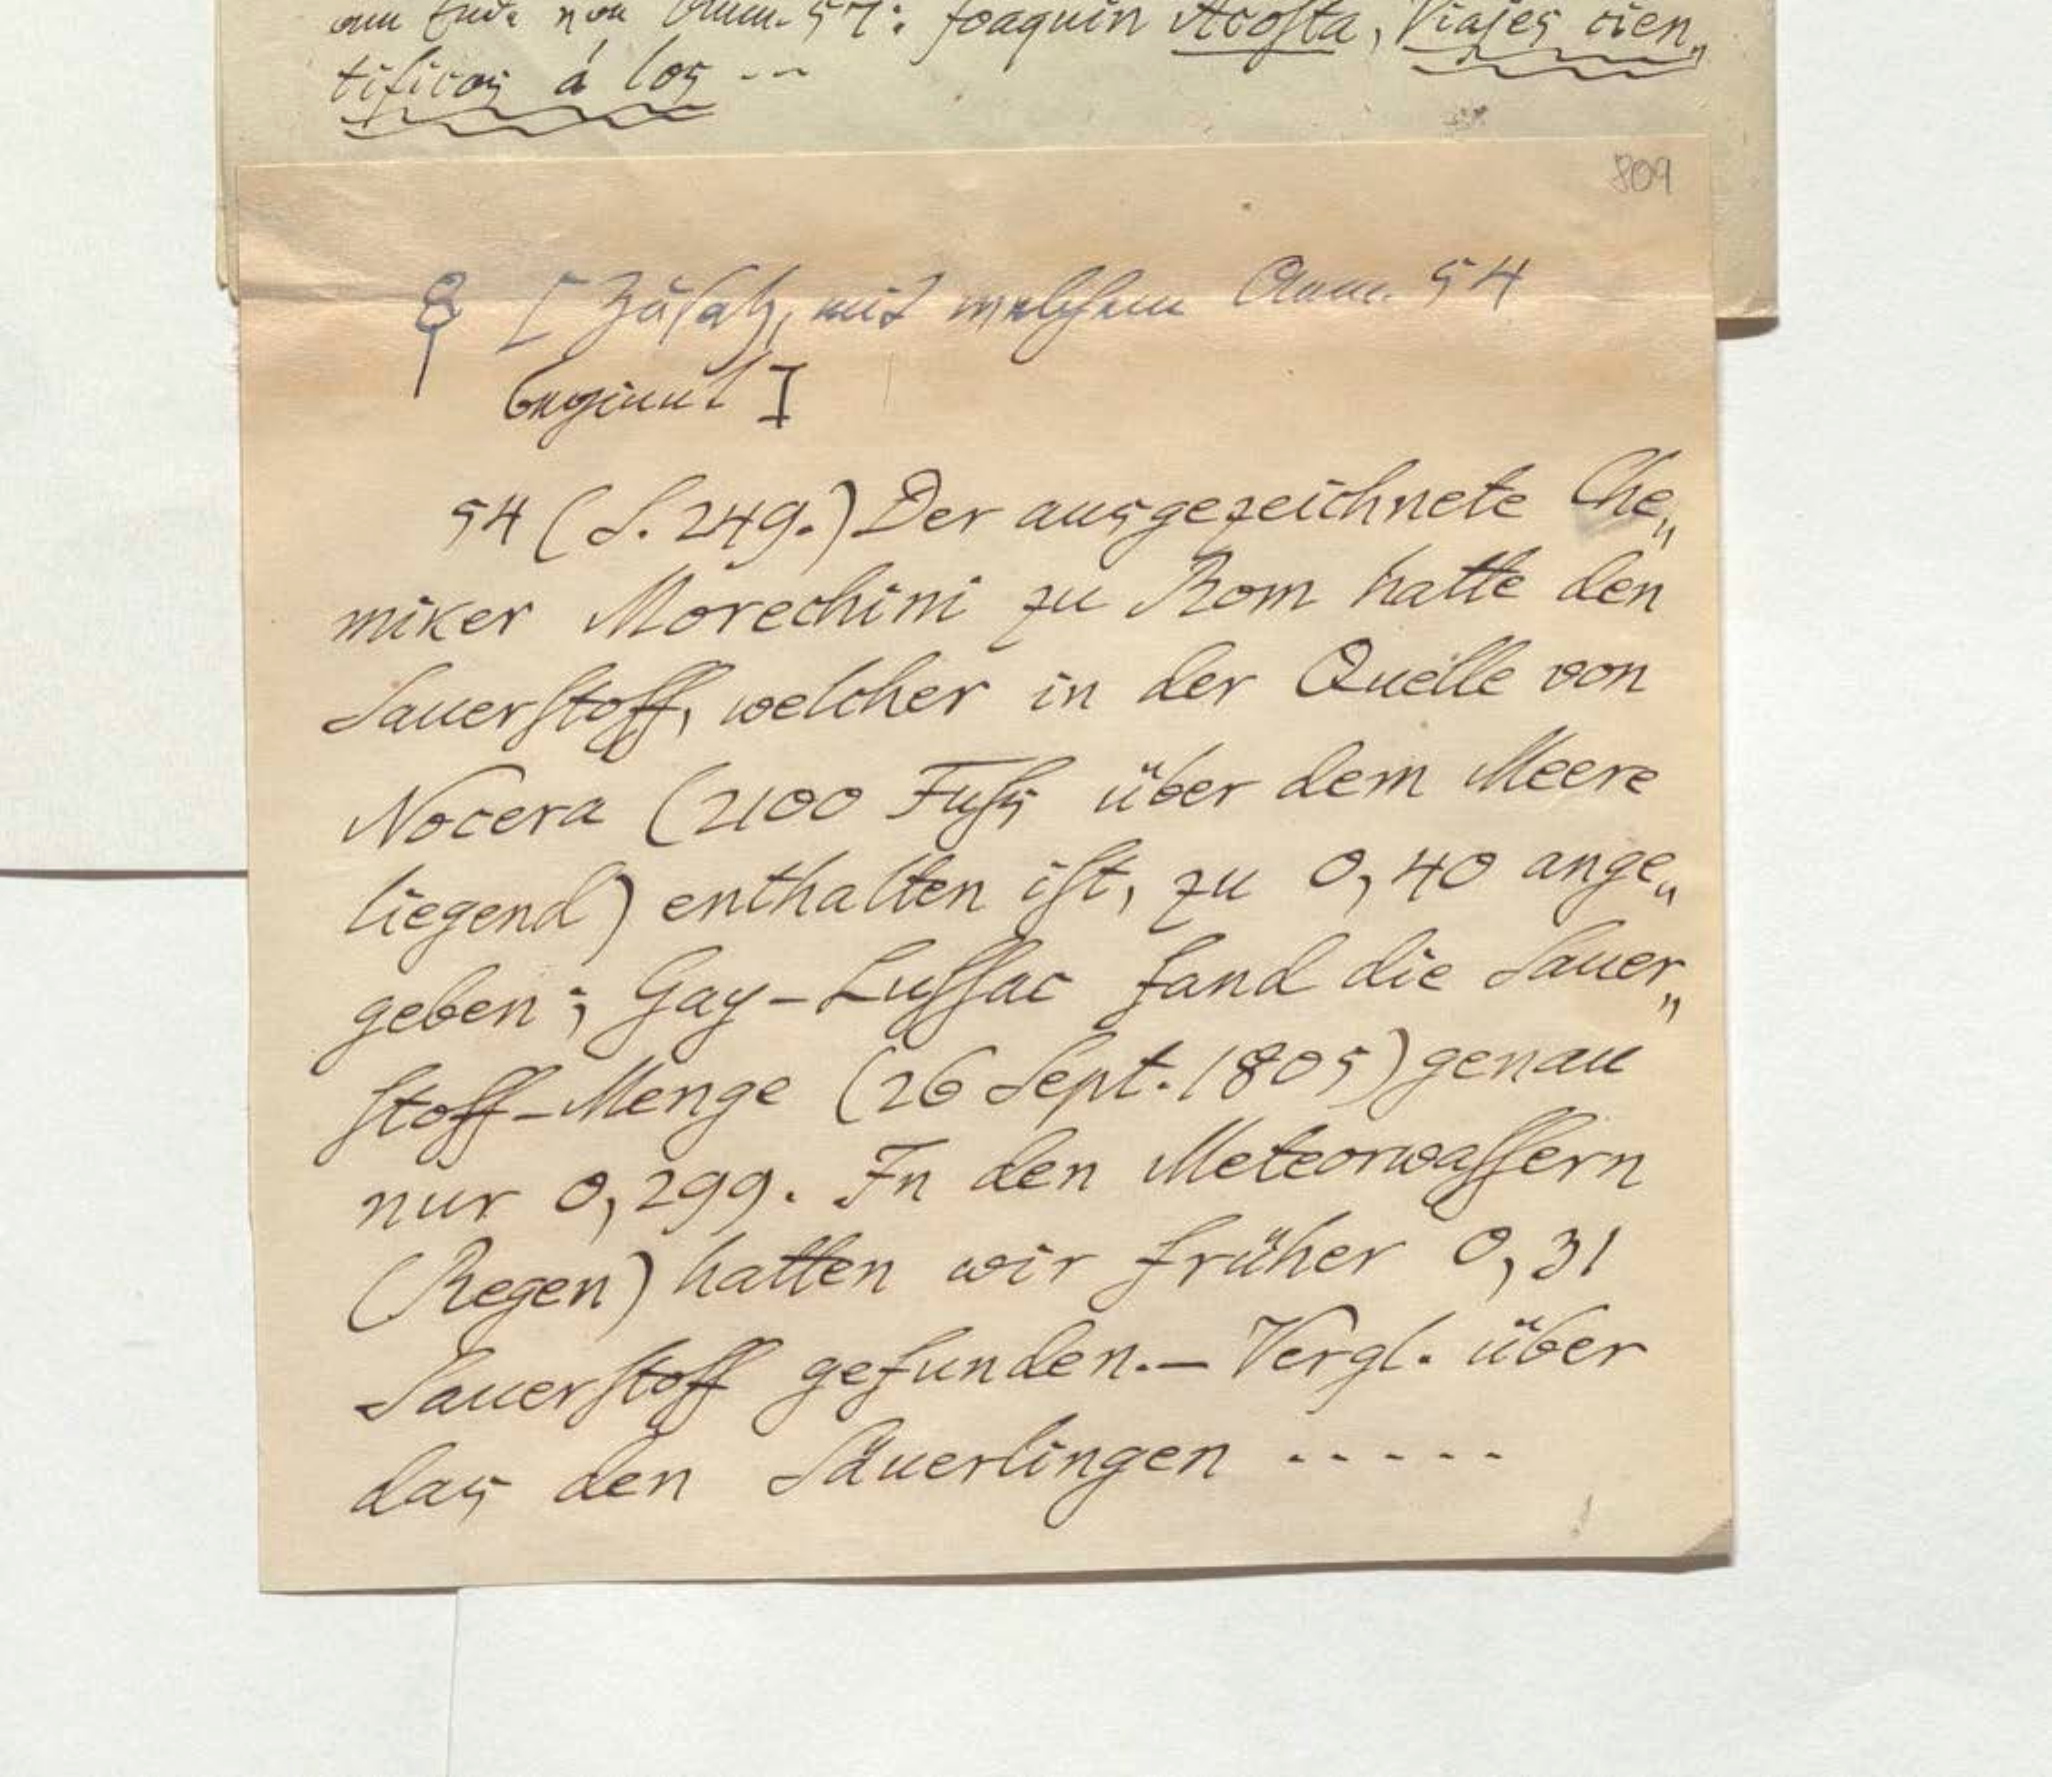 am Ende von Anm. 57: Joaquin Acosta, Viajes cien„
tificos á los ---
809
[Zusatz, mit welchem Anm. 54
beginnt]
54 (S. 249.) Der ausgezeichnete Che„
miker Morechini zu Rom hatte den
Sauerſtoff, welcher in der Quelle von
Nocera (2100 Fuſs über dem Meere
liegend) enthalten iſt, zu 0,40 ange„
geben; Gay-Luſſac fand die Sauer„
ſtoff-Menge (26 Sept. 1805) genau
nur 0,299. In den Meteorwaſſern
(Regen) hatten wir früher 0,31
Sauerſtoff gefunden.— Vergl. über
das den Säuerlingen -----